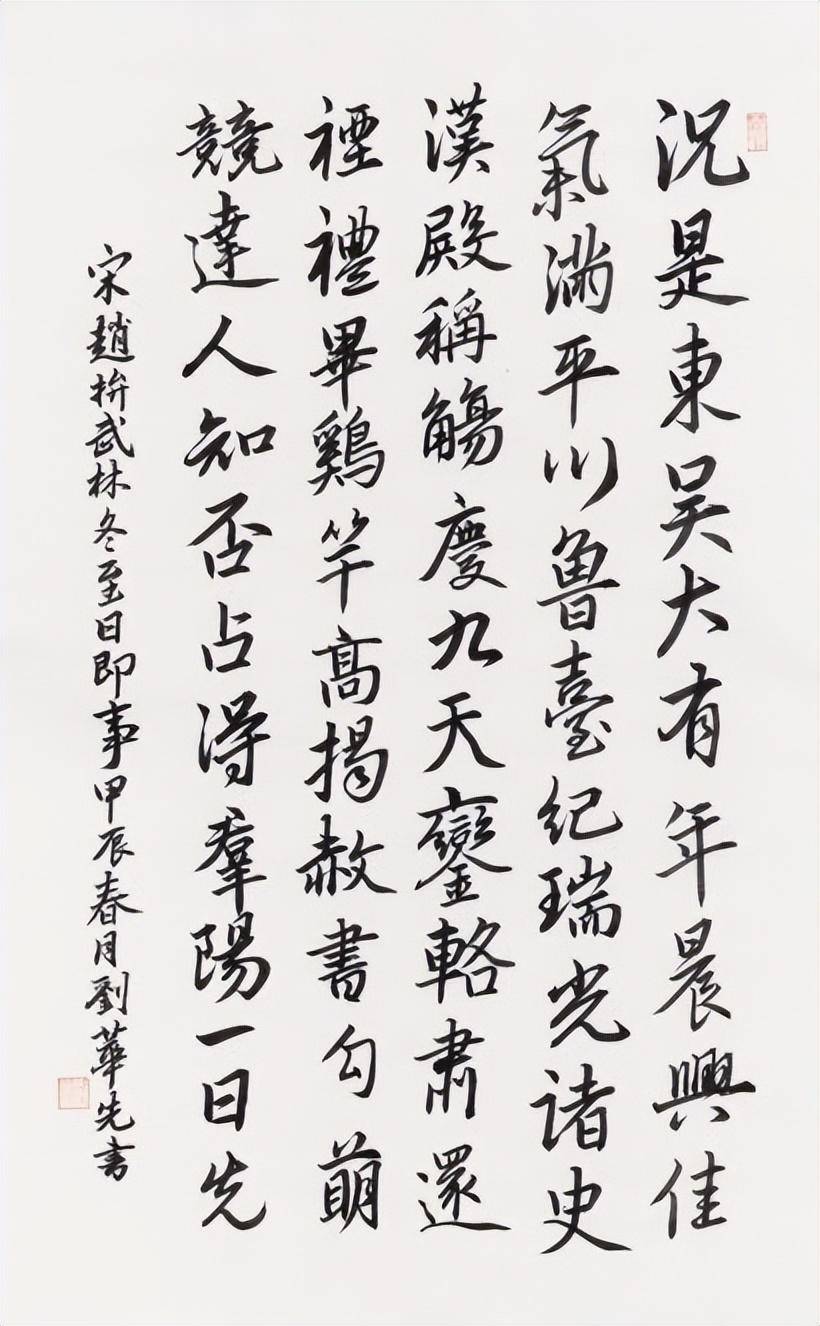 況是東吳大有年晨興佳
氣滿平川魯臺紀瑞光諸史
漢殿稱觴慶九天鑾輅肅還
禋禮畢鷄竿高揭赦書勾萌
競達人知否占得羣陽一日先
宋趙抃武林冬至日即事甲辰春月劉華先書